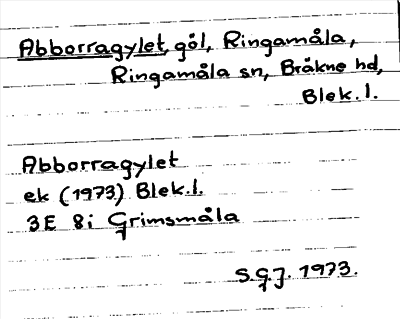 Abborragylet, göl, Ringamåla,
Ringamåla sn, Bräkne hd,
Blek.l.
Abborragylet
ek (1973) Blek.l.
3E 8i Grimsmåla
S.G.J. 1973.